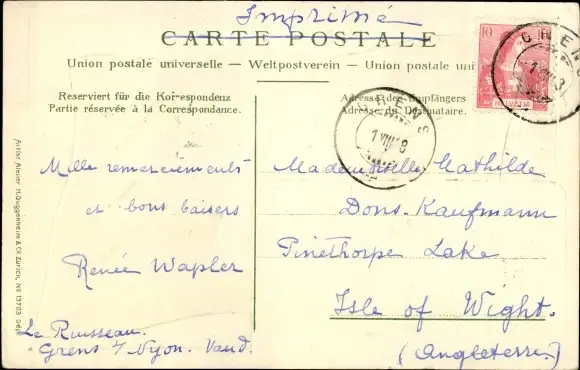 Imprimé
CARTE POSTALE
Union postale universelle — Weltpostverein — Union postale uni
Reserviert für die Korrespondenz
Partie réservée à la Correspondance.
Adresse des Empfängers
Adresse du Destinataire.
10
HELVETIA
GRENS
1 VIII 8
GREN
1 VIII 8
Mille remerciements
et bons baisers
Renée Wapler
Le Ruisseau.
Grens s/ Nyon. Vaud.
Mademoiselle Mathilde
Dons-Kaufmann
Pinethorpe Lake
Isle of Wight.
(Angleterre.)
Atelier H. Guggenheim & Co. Zürich, No 13783. Dép.